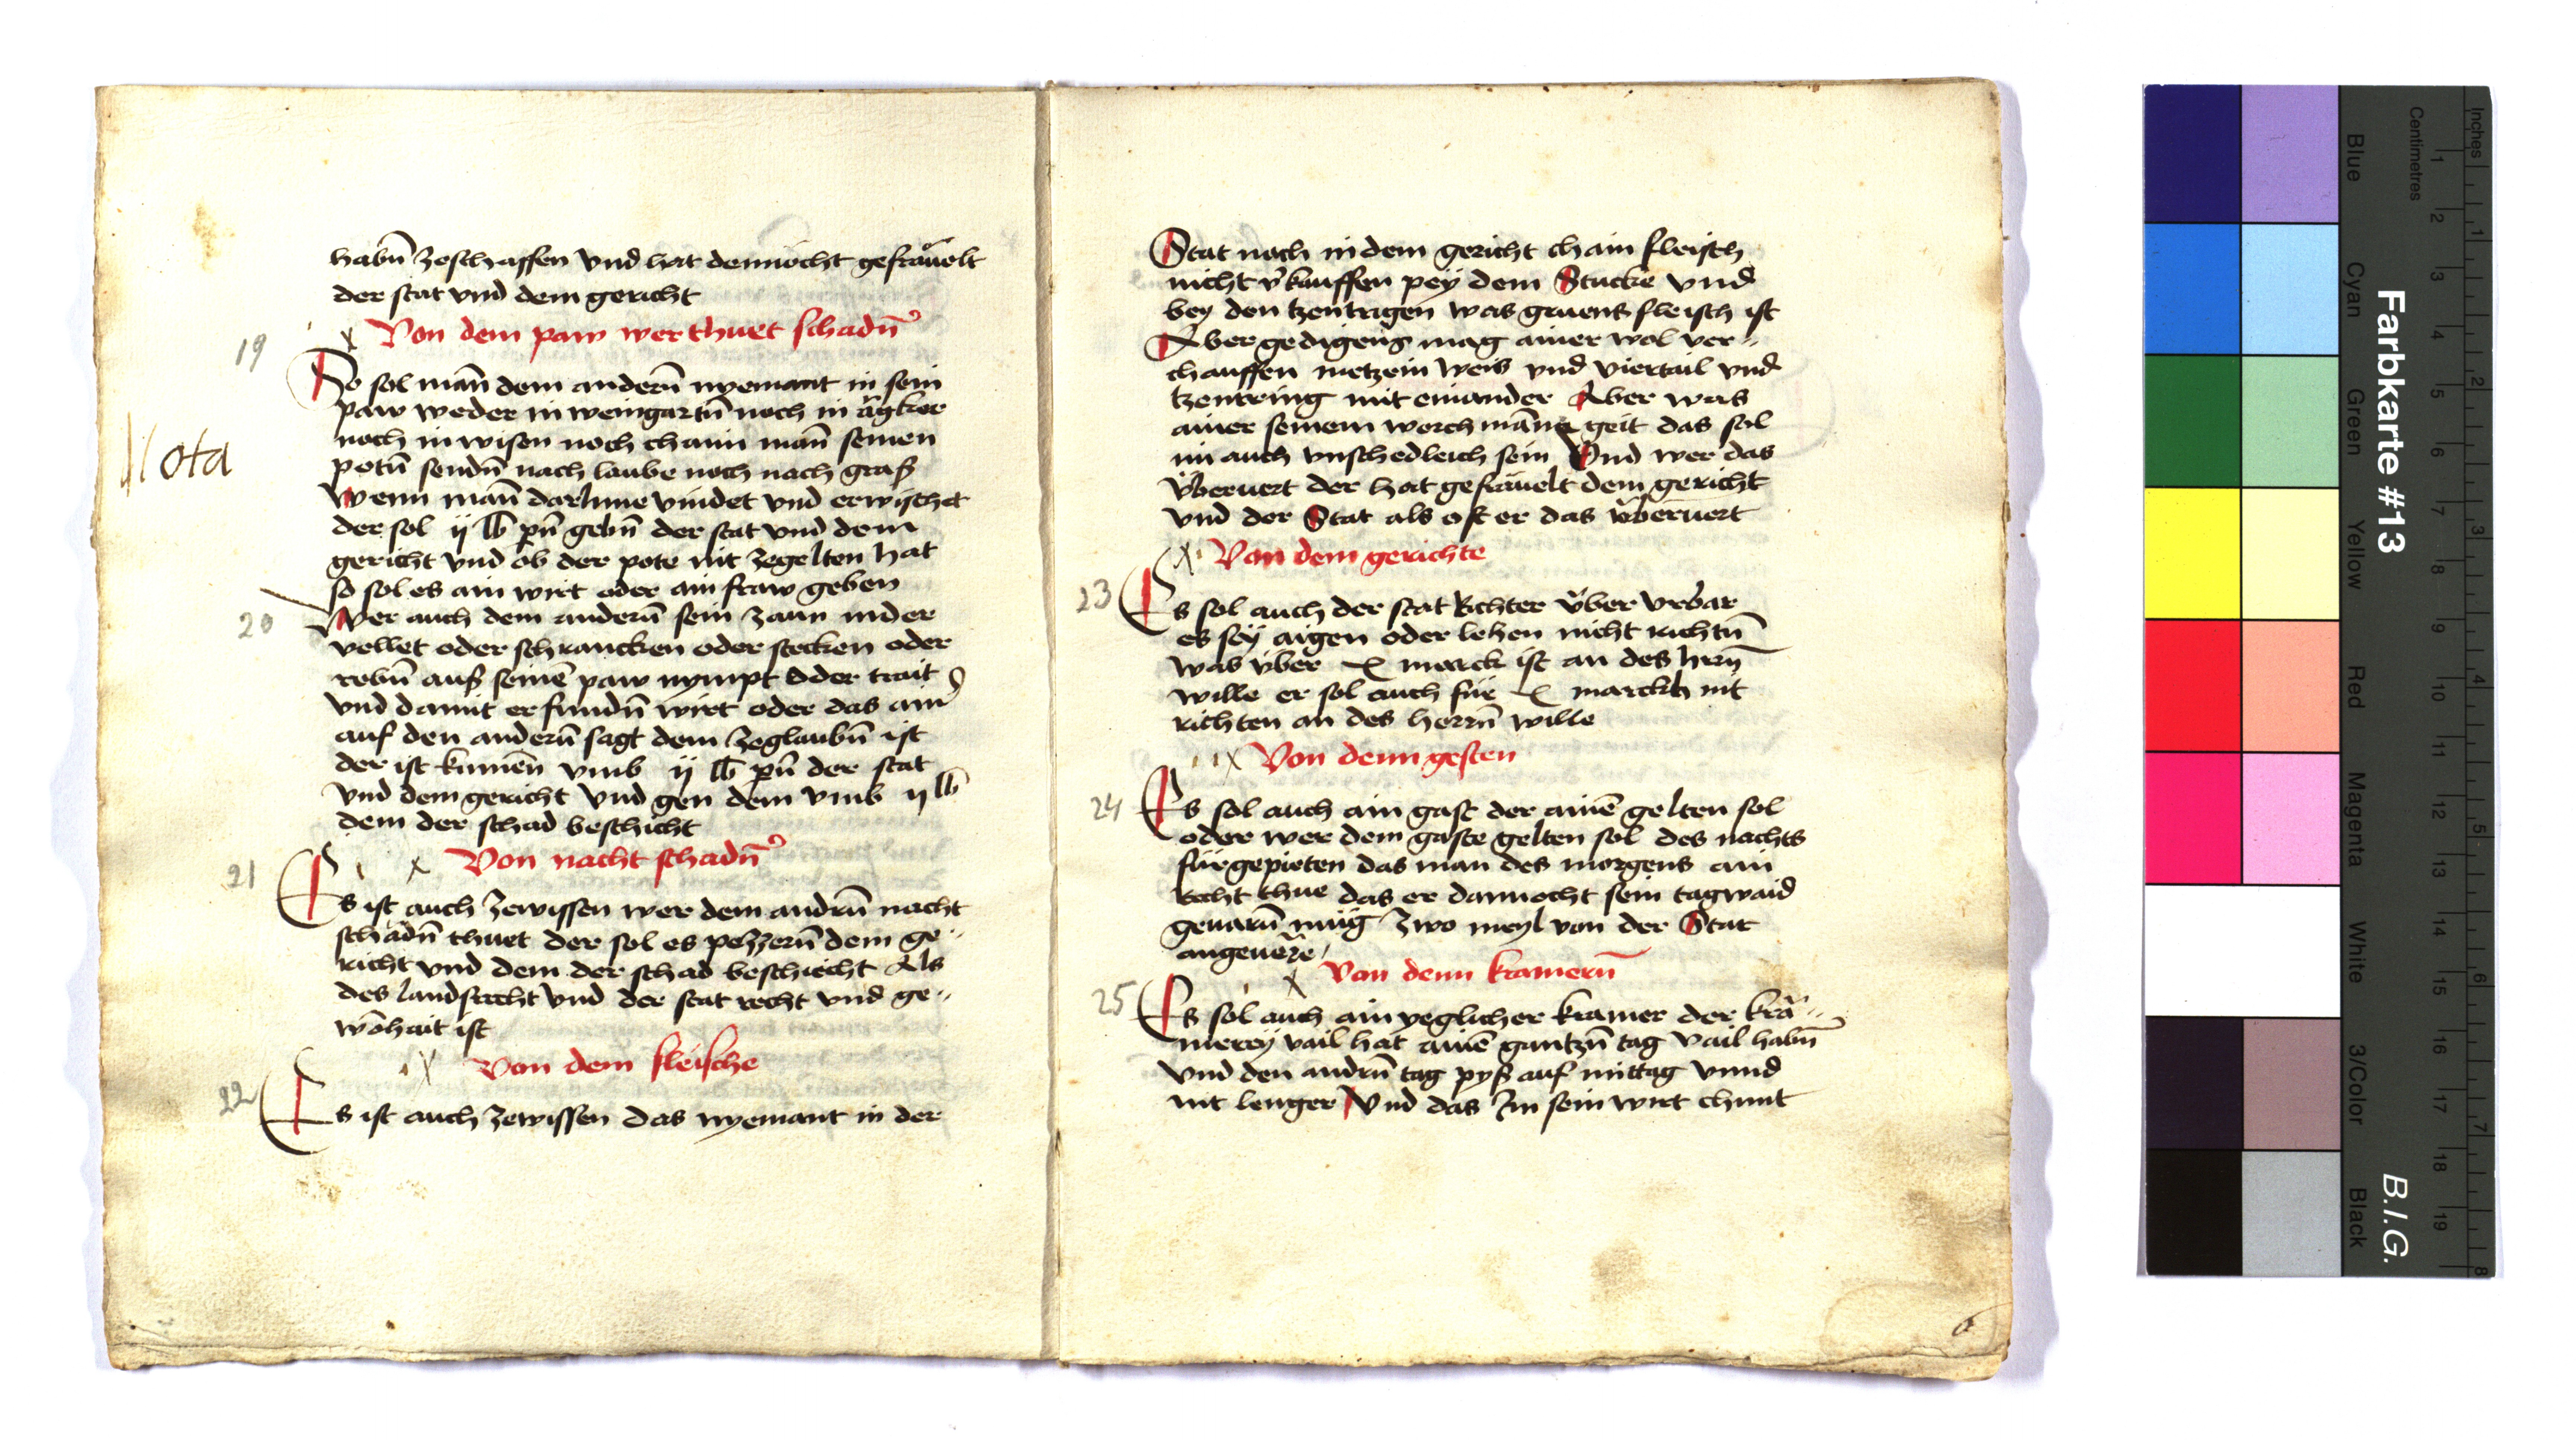 habn̄ zeschaffen vnd hat dennocht gefräuelt
der stat vnd dem gericht
19
x Von dem paw wer thuet schadn̄
So sol man̄ dem andern̄ nyemant in sein
paw weder in weingartn̄ noch in ägker
Nota
noch in wisen noch chain man̄ seinen
potn̄ sendn̄ nach laube noch nach graß
Wenn man̄ darInne vindet vnd erwischet
der sol ij lb pn̄ gebn̄ der stat vnd dem
gericht vnd ob der pote nit zegelten hat
so sol es ain wirt oder ain fraw geben
20
Wer auch dem andern̄ sein zaun nider
vellet oder schrancken oder stecken oder
rebn̄ auß seinē paw nympt oder trait
vnd damit erfundn̄ wirt oder das ain
auf den andern̄ sagt dem zeglaubn̄ ist
der ist kumen̄ vmb ij lb pn̄ der stat
vnd dem gericht vnd gen dem vmb ij lb
dem der schad beschicht
21
x Von nacht schadn̄
Es ist auch zewissen wer dem andrn̄ nacht
schadn̄ thuet der sol es pesszern̄ dem ge-
richt vnd dem der schad beschiecht Als
des landsrecht vnd der stat recht vnd ge-
wōhait ist
x Von dem fleische
22
Es ist auch zewissen das nyemant in der
Stat noch in dem gericht chain fleisch
nicht v̾kauffen pey dem Stucke vnd
bey den tzentrigen was gruens fleisch ist
Aber gedigens mag ainer wol ver-
chauffen metzein weis vnd viertail vnd
tzentring mit einander Aber was
ainer seinem worchmann geit das sol
im auch vnschedleich sein Vnd wer das
vberuert der hat gefräuelt dem gericht
vnd der Stat als oft er das vberuert
x Von dem gerichte
23
Es sol auch der stat Richter vber vrbar
es sey aigen oder lehen nicht richtn̄
was vber x marck ist an des hern̄
wille er sol auch für x marckh nit
richten an des herrn̄ wille
x Von denn gesten
24
Es sol auch ain gast der ainē gelten sol
oder wer dem gaste gelten sol des nachts
fürgepieten das man des morgens ain
recht thue das er dannocht sein tagwaid
geuarn̄ müg zwo meyl von der Stat
angeuerē
x Von denn kramern̄
25
Es sol auch ain yeglicher kramer der krä-
merey vail hat ainē gantzn̄ tag vail habn̄
vnd den andrn̄ tag pyß auf mittag vnnd
nit lenger Vnd das Im sein wirt chunt
6
Farbkarte #13
B.I.G.
Inches
Centimetres
Blue
Cyan
Green
Yellow
Red
Magenta
White
3/Color
Black
1 2 3 4 5 6 7 8 9 10 11 12 13 14 15 16 17 18 19
1 2 3 4 5 6 7 8